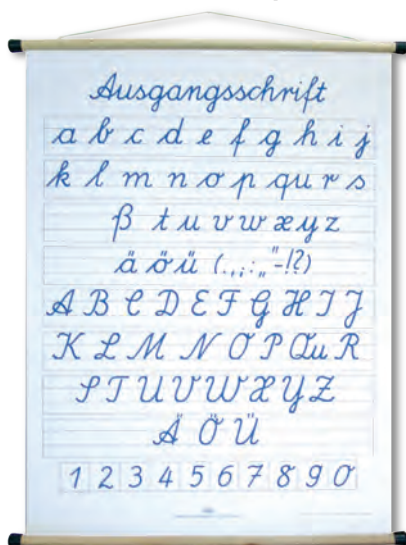 Ausgangsschrift
a b c d e f g h i j
k l m n o p qu r s
ß t u v w x y z
ä ö ü (.,;:„"-!?)
A B C D E F G H I J
K L M N O P Qu R
S T U V W X Y Z
Ä Ö Ü
1 2 3 4 5 6 7 8 9 0